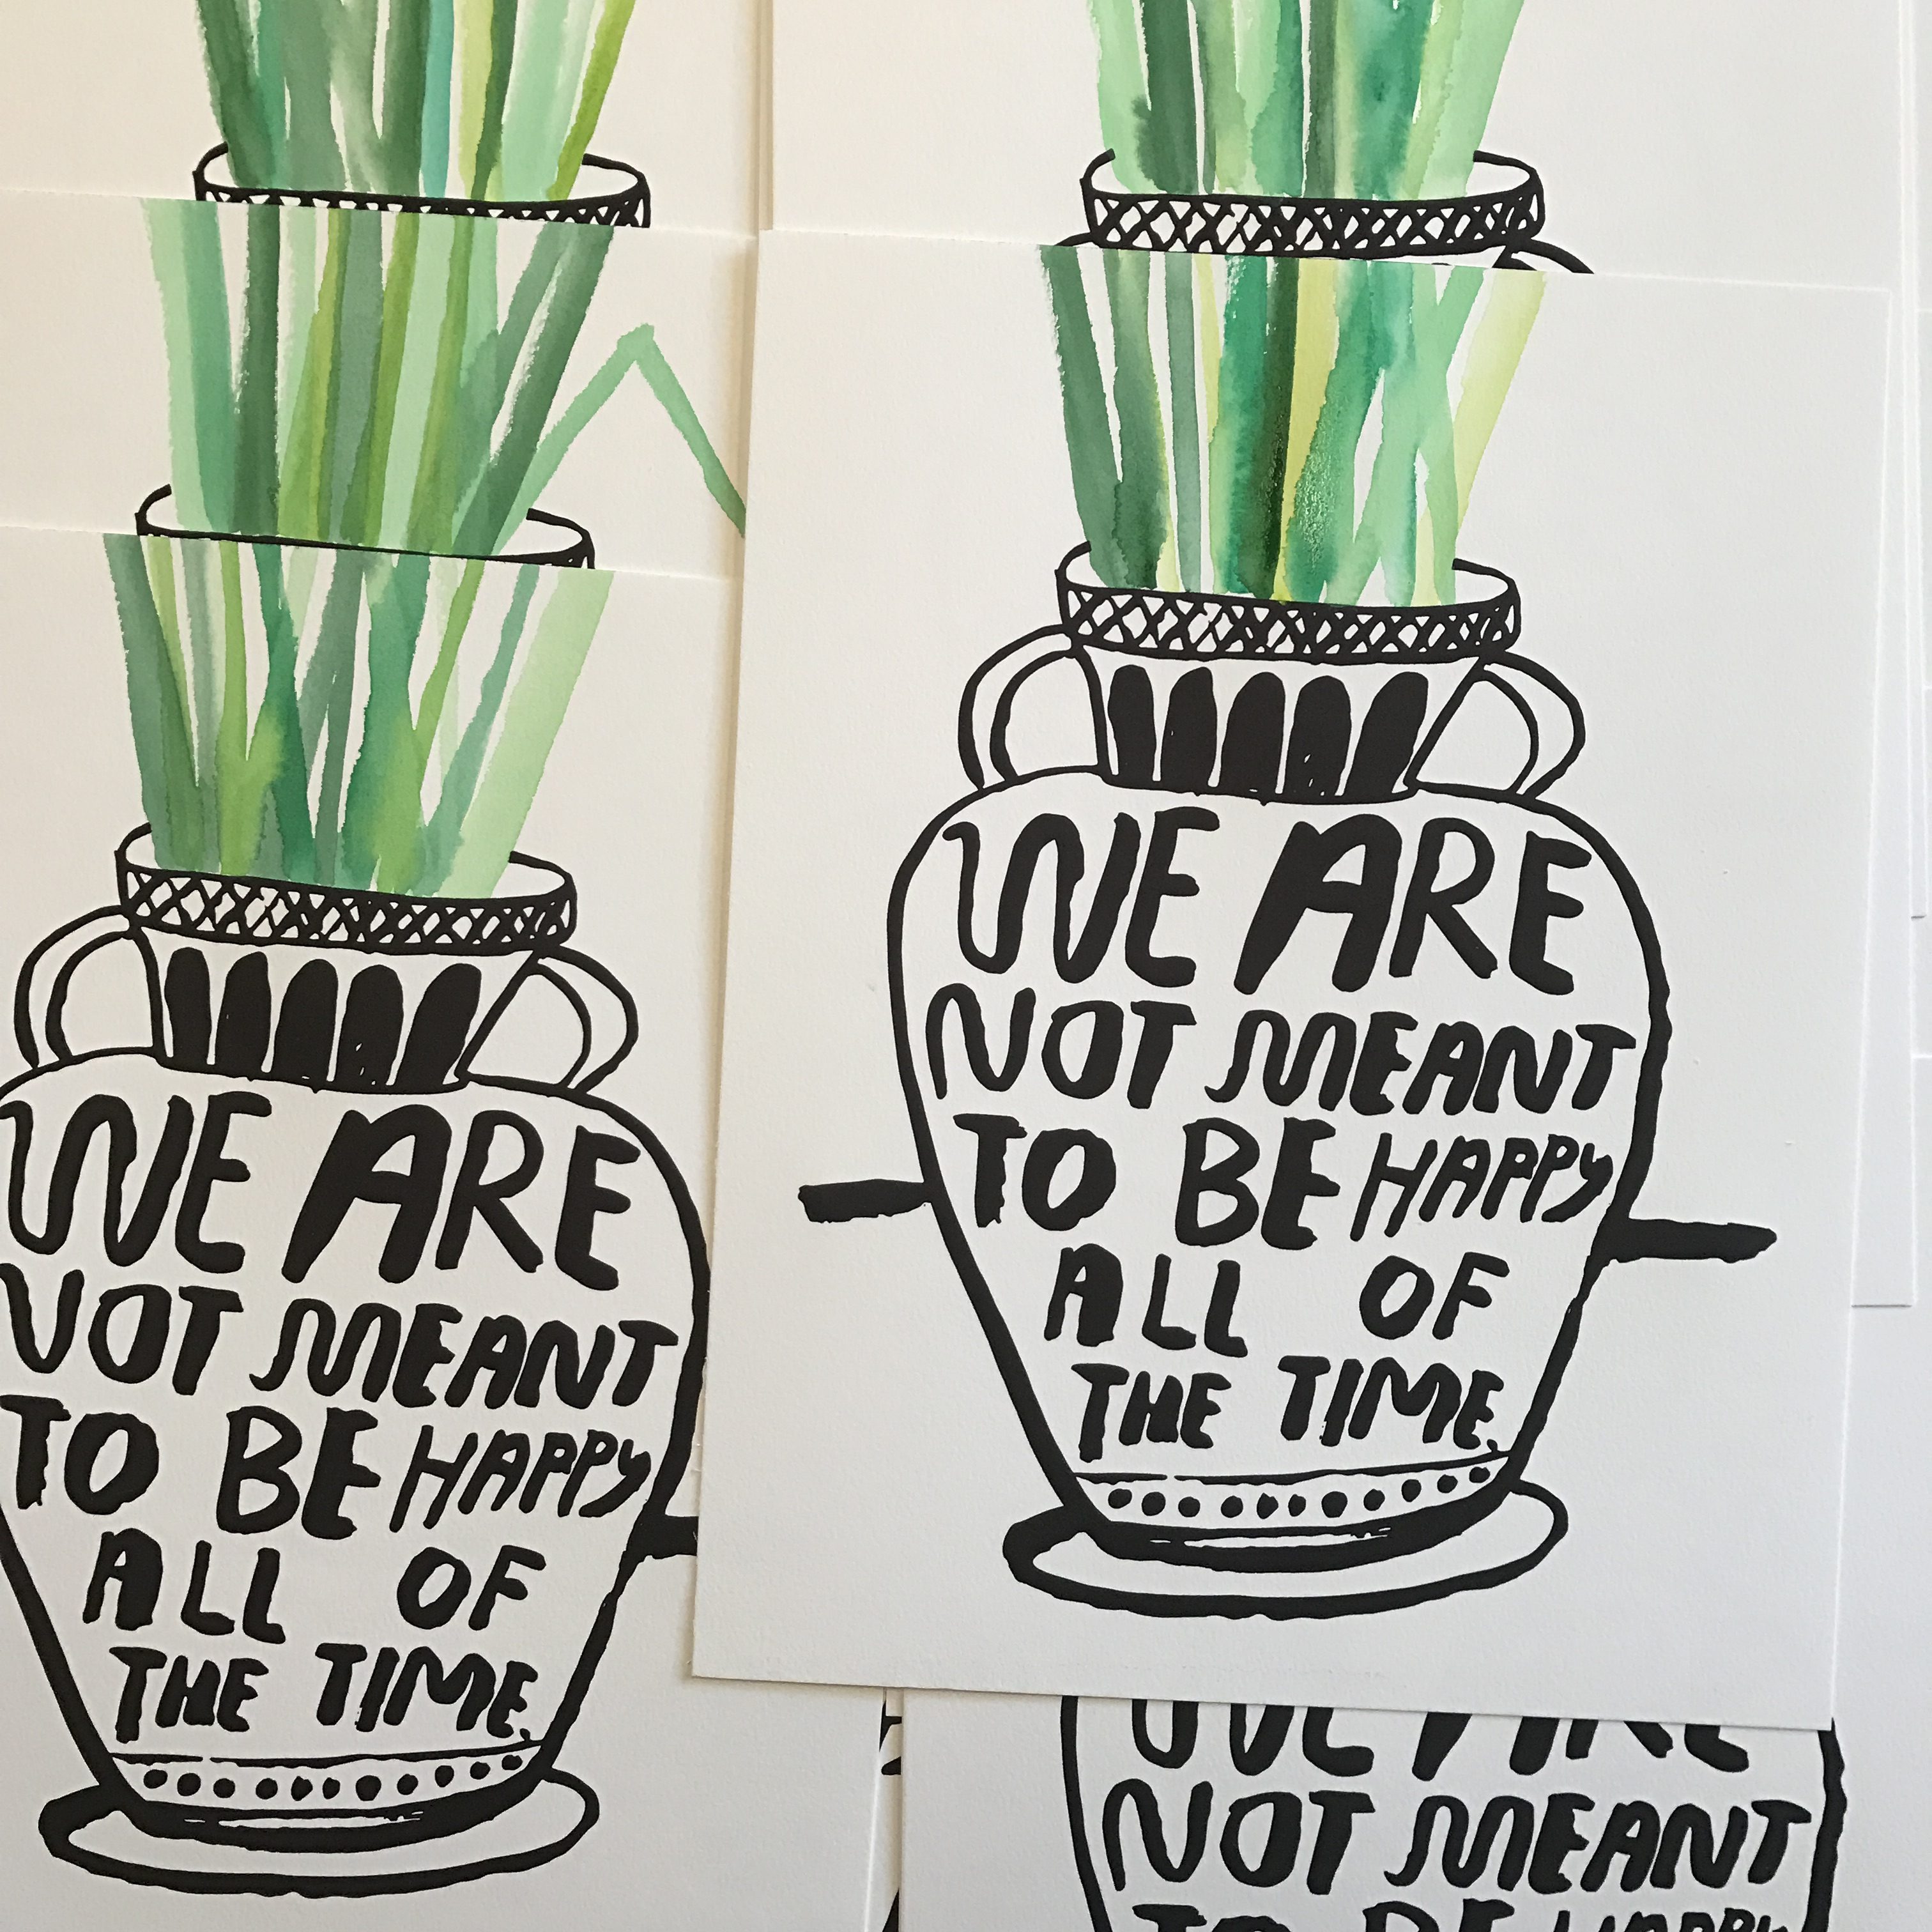 WE ARE
NOT MEANT
TO BE HAPPY
ALL OF
THE TIME.
WE ARE
NOT MEANT
TO BE HAPPY
ALL OF
THE TIME.
WE ARE
NOT MEANT
TO BE HAPPY